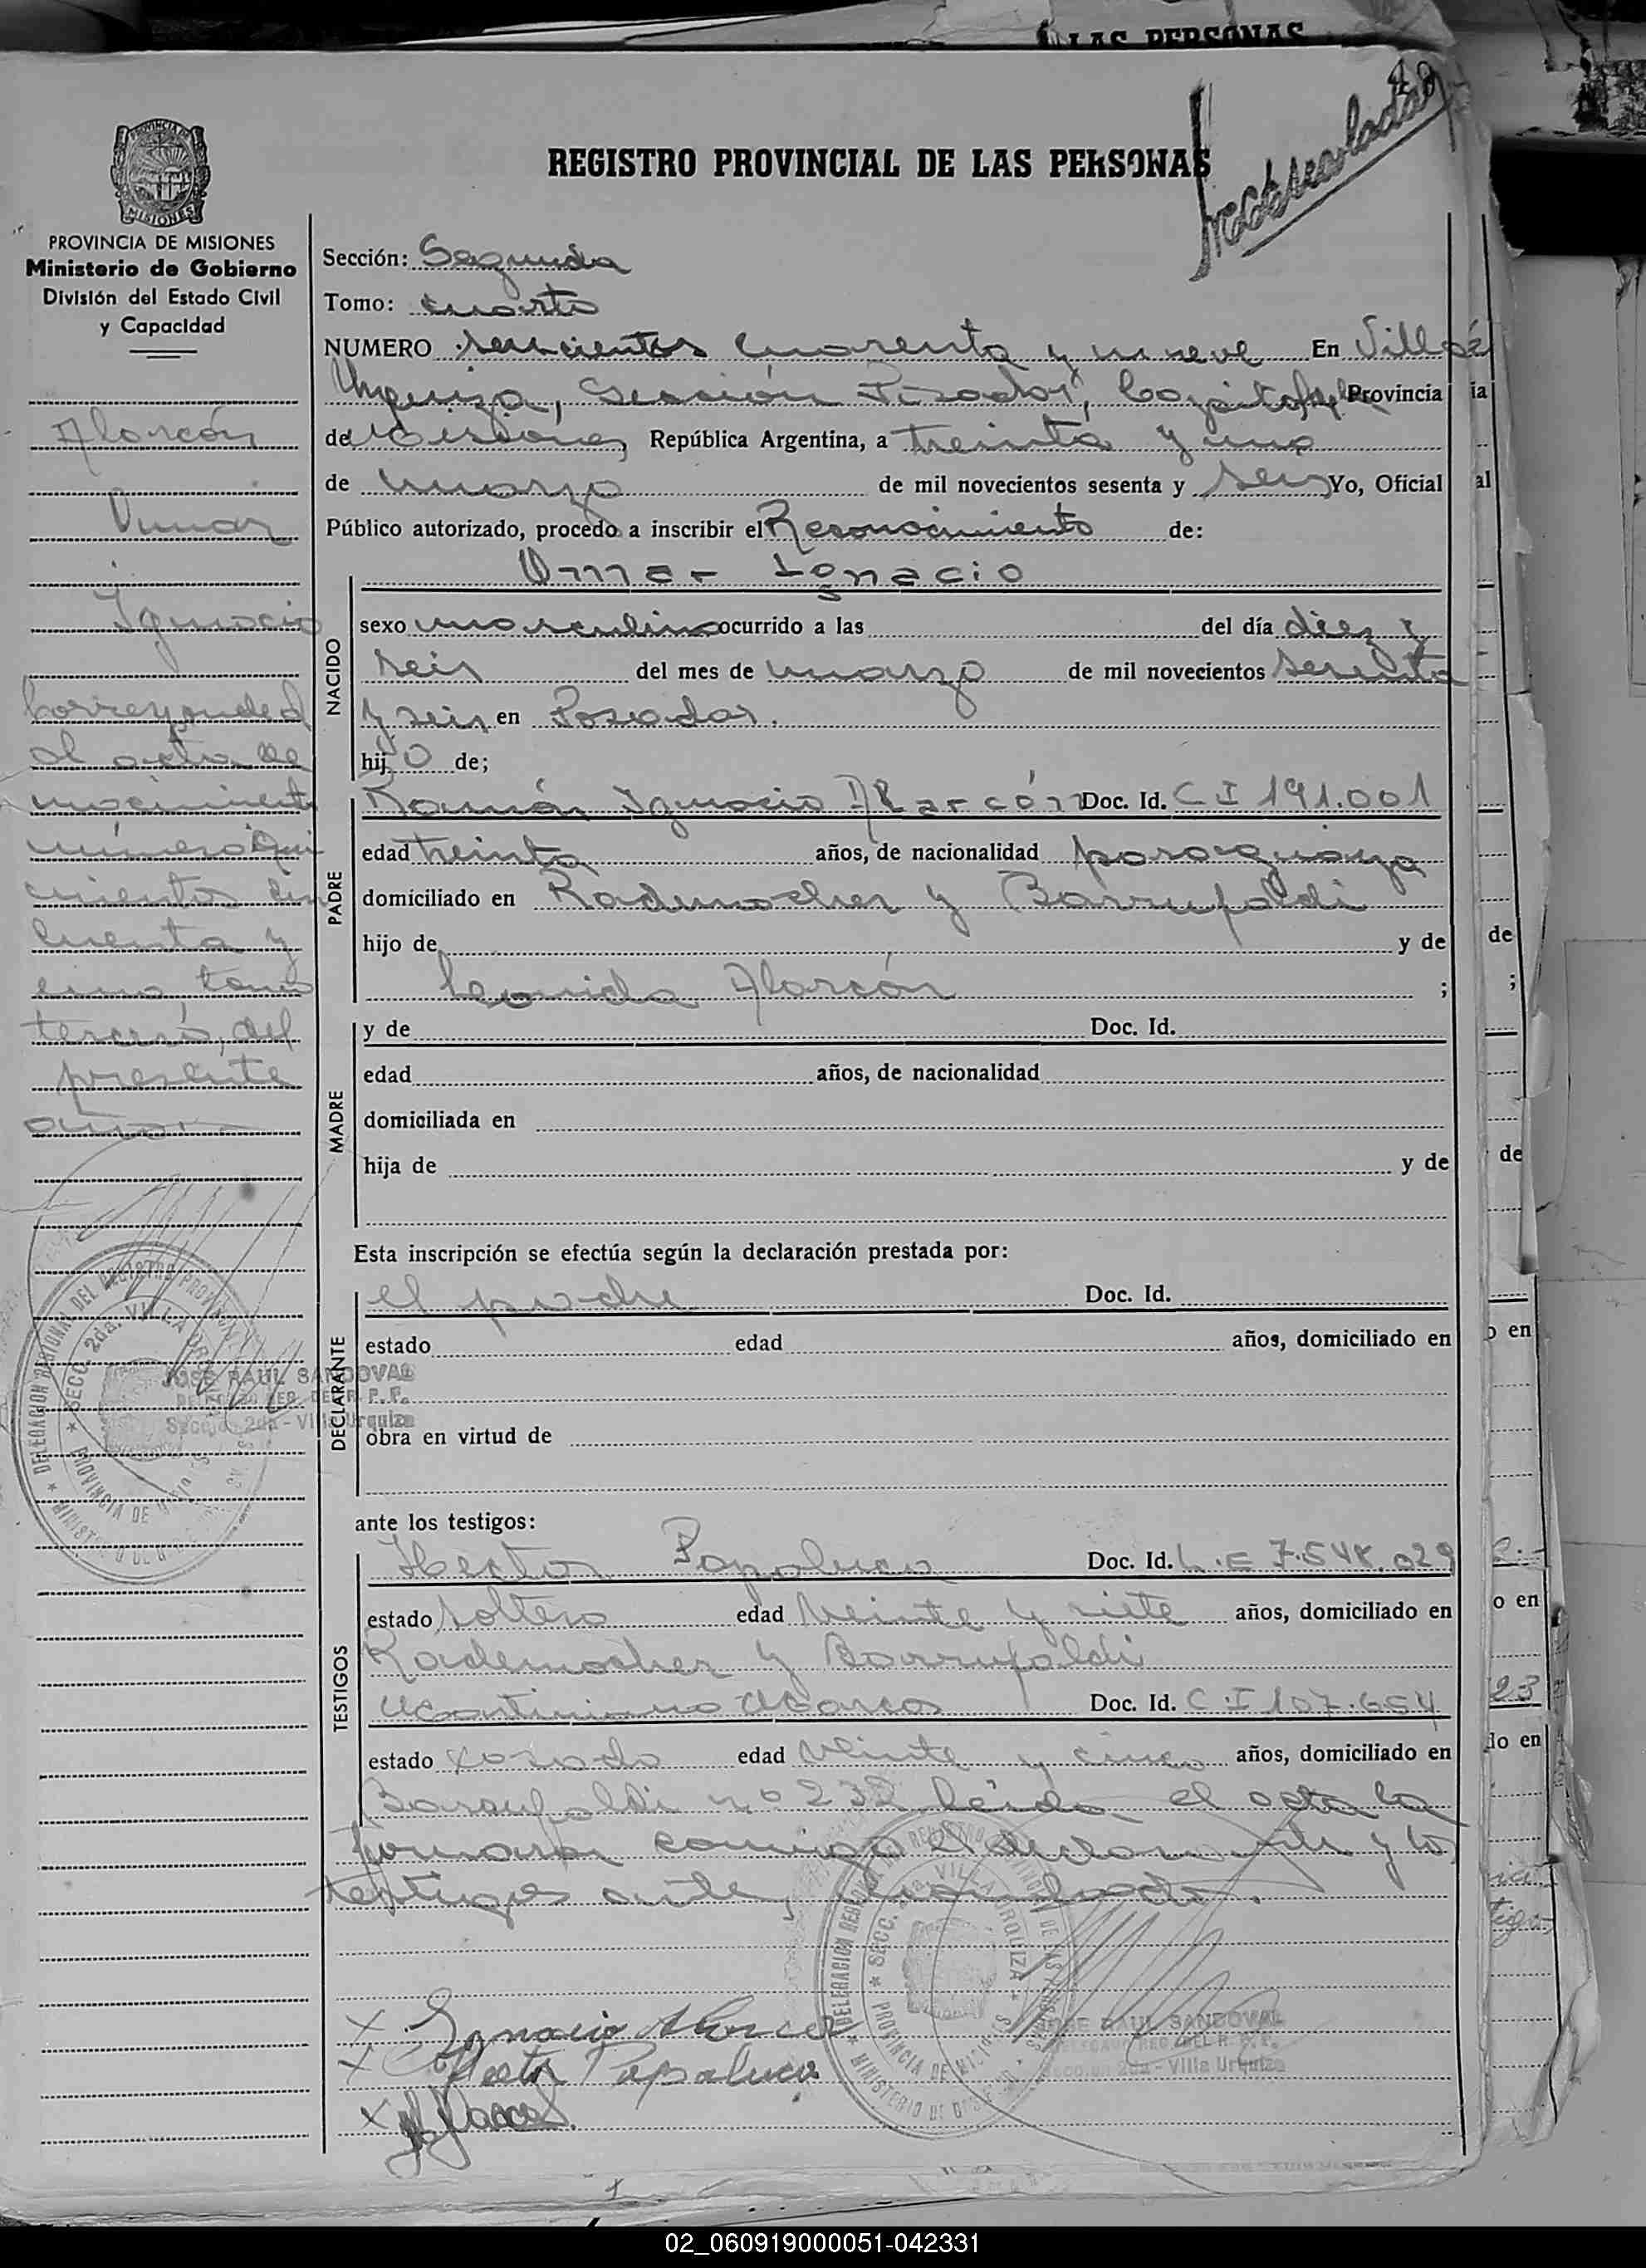 LAS PERSONAS
48
REGISTRO PROVINCIAL DE LAS PERSONAS
PROVINCIA DE MISIONES
Ministerio de Gobierno
División del Estado Civil
y Capacidad
Alarcón
Omar
Ignacio
Corresponde al
al acta de
nacimiento
número qui
nientos cin
cuenta y
uno, tomo
tercero, del
presente
año.-
Sección: Segunda
Tomo: cuarto
NUMERO seiscientos cuarenta y nueve En Villa
Urquiza, Sección Posadas, Capital de la Provincia
de Misiones, República Argentina, a treinta y uno
de marzo de mil novecientos sesenta y seis Yo, Oficial
Público autorizado, procedo a inscribir el Reconocimiento de:
Omar Ignacio
NACIDO
sexo masculino ocurrido a las del día diez y
seis del mes de marzo de mil novecientos sesenta
y seis en Posadas.
hijo de;
PADRE
Ramón Ignacio Alarcón Doc. Id. C I 191.001
edad treinta años, de nacionalidad paraguaya
domiciliado en Rademacher y Barrufaldi
hijo de y de
Leonida Alarcón ;
MADRE
y de Doc. Id.
edad años, de nacionalidad
domiciliada en
hija de y de
Esta inscripción se efectúa según la declaración prestada por:
DECLARANTE
el padre Doc. Id.
estado edad años, domiciliado en
obra en virtud de
JOSE RAUL SANDOVAL
DELEGADO REG. DEL R. P. P.
Sección 2da - Villa Urquiza
DELEGACION REGIONAL DEL REGISTRO PROVINCIAL
SECC. 2da. VILLA URQUIZA
PROVINCIA DE MISIONES
ante los testigos:
TESTIGOS
Hector Papaluca Doc. Id. L.E 7.548.029
estado soltero edad veinte y siete años, domiciliado en
Rademacher y Barrufaldi
Martiniano Marcos Doc. Id. C.I 107.654
estado casado edad veinte y cinco años, domiciliado en
Barrufaldi nº 232 leída el acta la
firmaron conmigo el declarante y los
testigos ante nombrado.
DELEGACION REGIONAL DEL REGISTRO PROVINCIAL DE LAS PERSONAS
SECC. 2da VILLA URQUIZA
PROVINCIA DE MISIONES
MINISTERIO DE GOBIERNO
JOSE RAUL SANDOVAL
DELEGADO REG. DEL R. P. P.
Sección 2da - Villa Urquiza
x Ignacio Alarcon
x Hector Papaluca
x Marcos
02_060919000051-042331